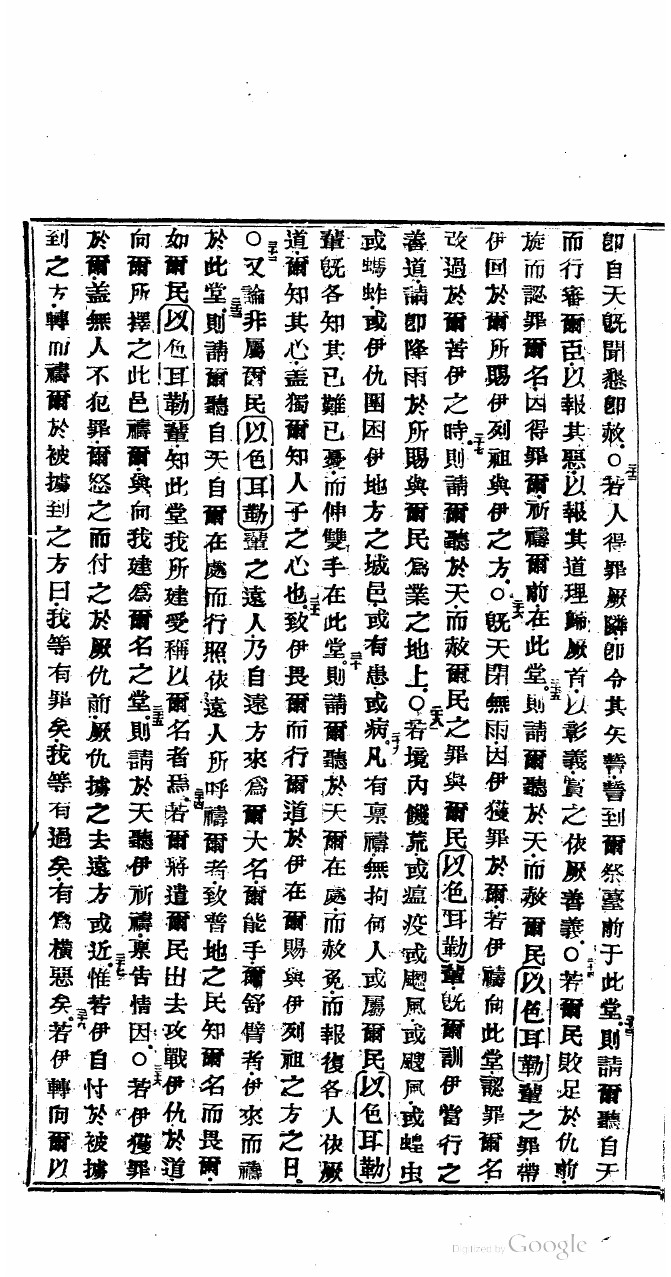 即自天既聞懇即赦○若人得罪厥隣即令其矢誓誓到爾祭臺前于此堂則請爾聽自天
而行審爾臣以報其惡以報其道理歸厥首以彰義賞之依厥善義○若爾民敗足於仇前
旋而認罪爾名因得罪爾祈禱爾前在此堂則請爾聽於天而赦爾民以色耳勒輩之罪帶
伊回於爾所賜伊列祖與伊之方○既天閉無雨因伊獲罪於爾若伊禱向此堂認罪爾名
改過於爾苦伊之時則請爾聽於天而赦爾民之罪與爾民以色耳勒輩既爾訓伊當行之
善道請即降雨於所賜與爾民爲業之地上○若境內饑荒或瘟疫或颶風或蝗虫
或螞蚱或伊仇圍困伊地方之城邑或有患或病凡有禀禱無拘何人或屬爾民以色耳勒
輩既各知其已難已憂而伸雙手在此堂則請爾聽於天爾在處而赦免而報復各人依厥
道爾知其心盖獨爾知人子之心也致伊畏爾而行爾道於伊在爾賜與伊列祖之方之日
○又論非屬爾民以色耳勒輩之遠人乃自遠方來爲爾大名爾能手爾舒臂者伊來而禱
於此堂則請爾聽自天自爾在處而行照依遠人所呼禱爾者致普地之民知爾名而畏爾
如爾民以色耳勒輩知此堂我所建受稱以爾名者焉若爾將遣爾民出去攻戰伊仇於道
向爾所擇之此邑禱爾與向我建爲爾名之堂則請於天聽伊祈禱禀告情因○若伊獲罪
於爾盖無人不犯罪爾怒之而付之於厥仇前厥仇擄之去遠方或近惟若伊自忖於被擄
到之方轉而禱爾於被擄到之方曰我等有罪矣我等有過矣有爲橫惡矣若伊轉向爾以
Digitized by Google